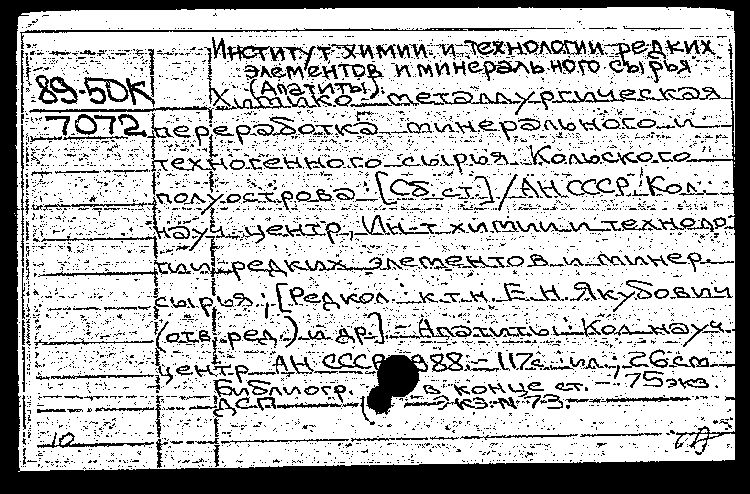 Институт химии и технологии редких
элементов и минерального сырья
(Апатиты).
89-5DK Химико-металлургическая
7072 переработка минерального и
техногенного сырья Кольского
полуострова: [Сб. ст.] / АН СССР. Кол.
науч. центр, Ин-т химии и техноло
гии редких элементов и минер.
сырья; [Редкол.: к.т.н. Е.Н. Якубович
(отв. ред.) и др.] - Апатиты: Кол. науч.
центр АН СССР, 1988. - 117с.: ил.; 26см
Библиогр. в конце ст. - 75 экз.
ДСП Экз. N 73.
10